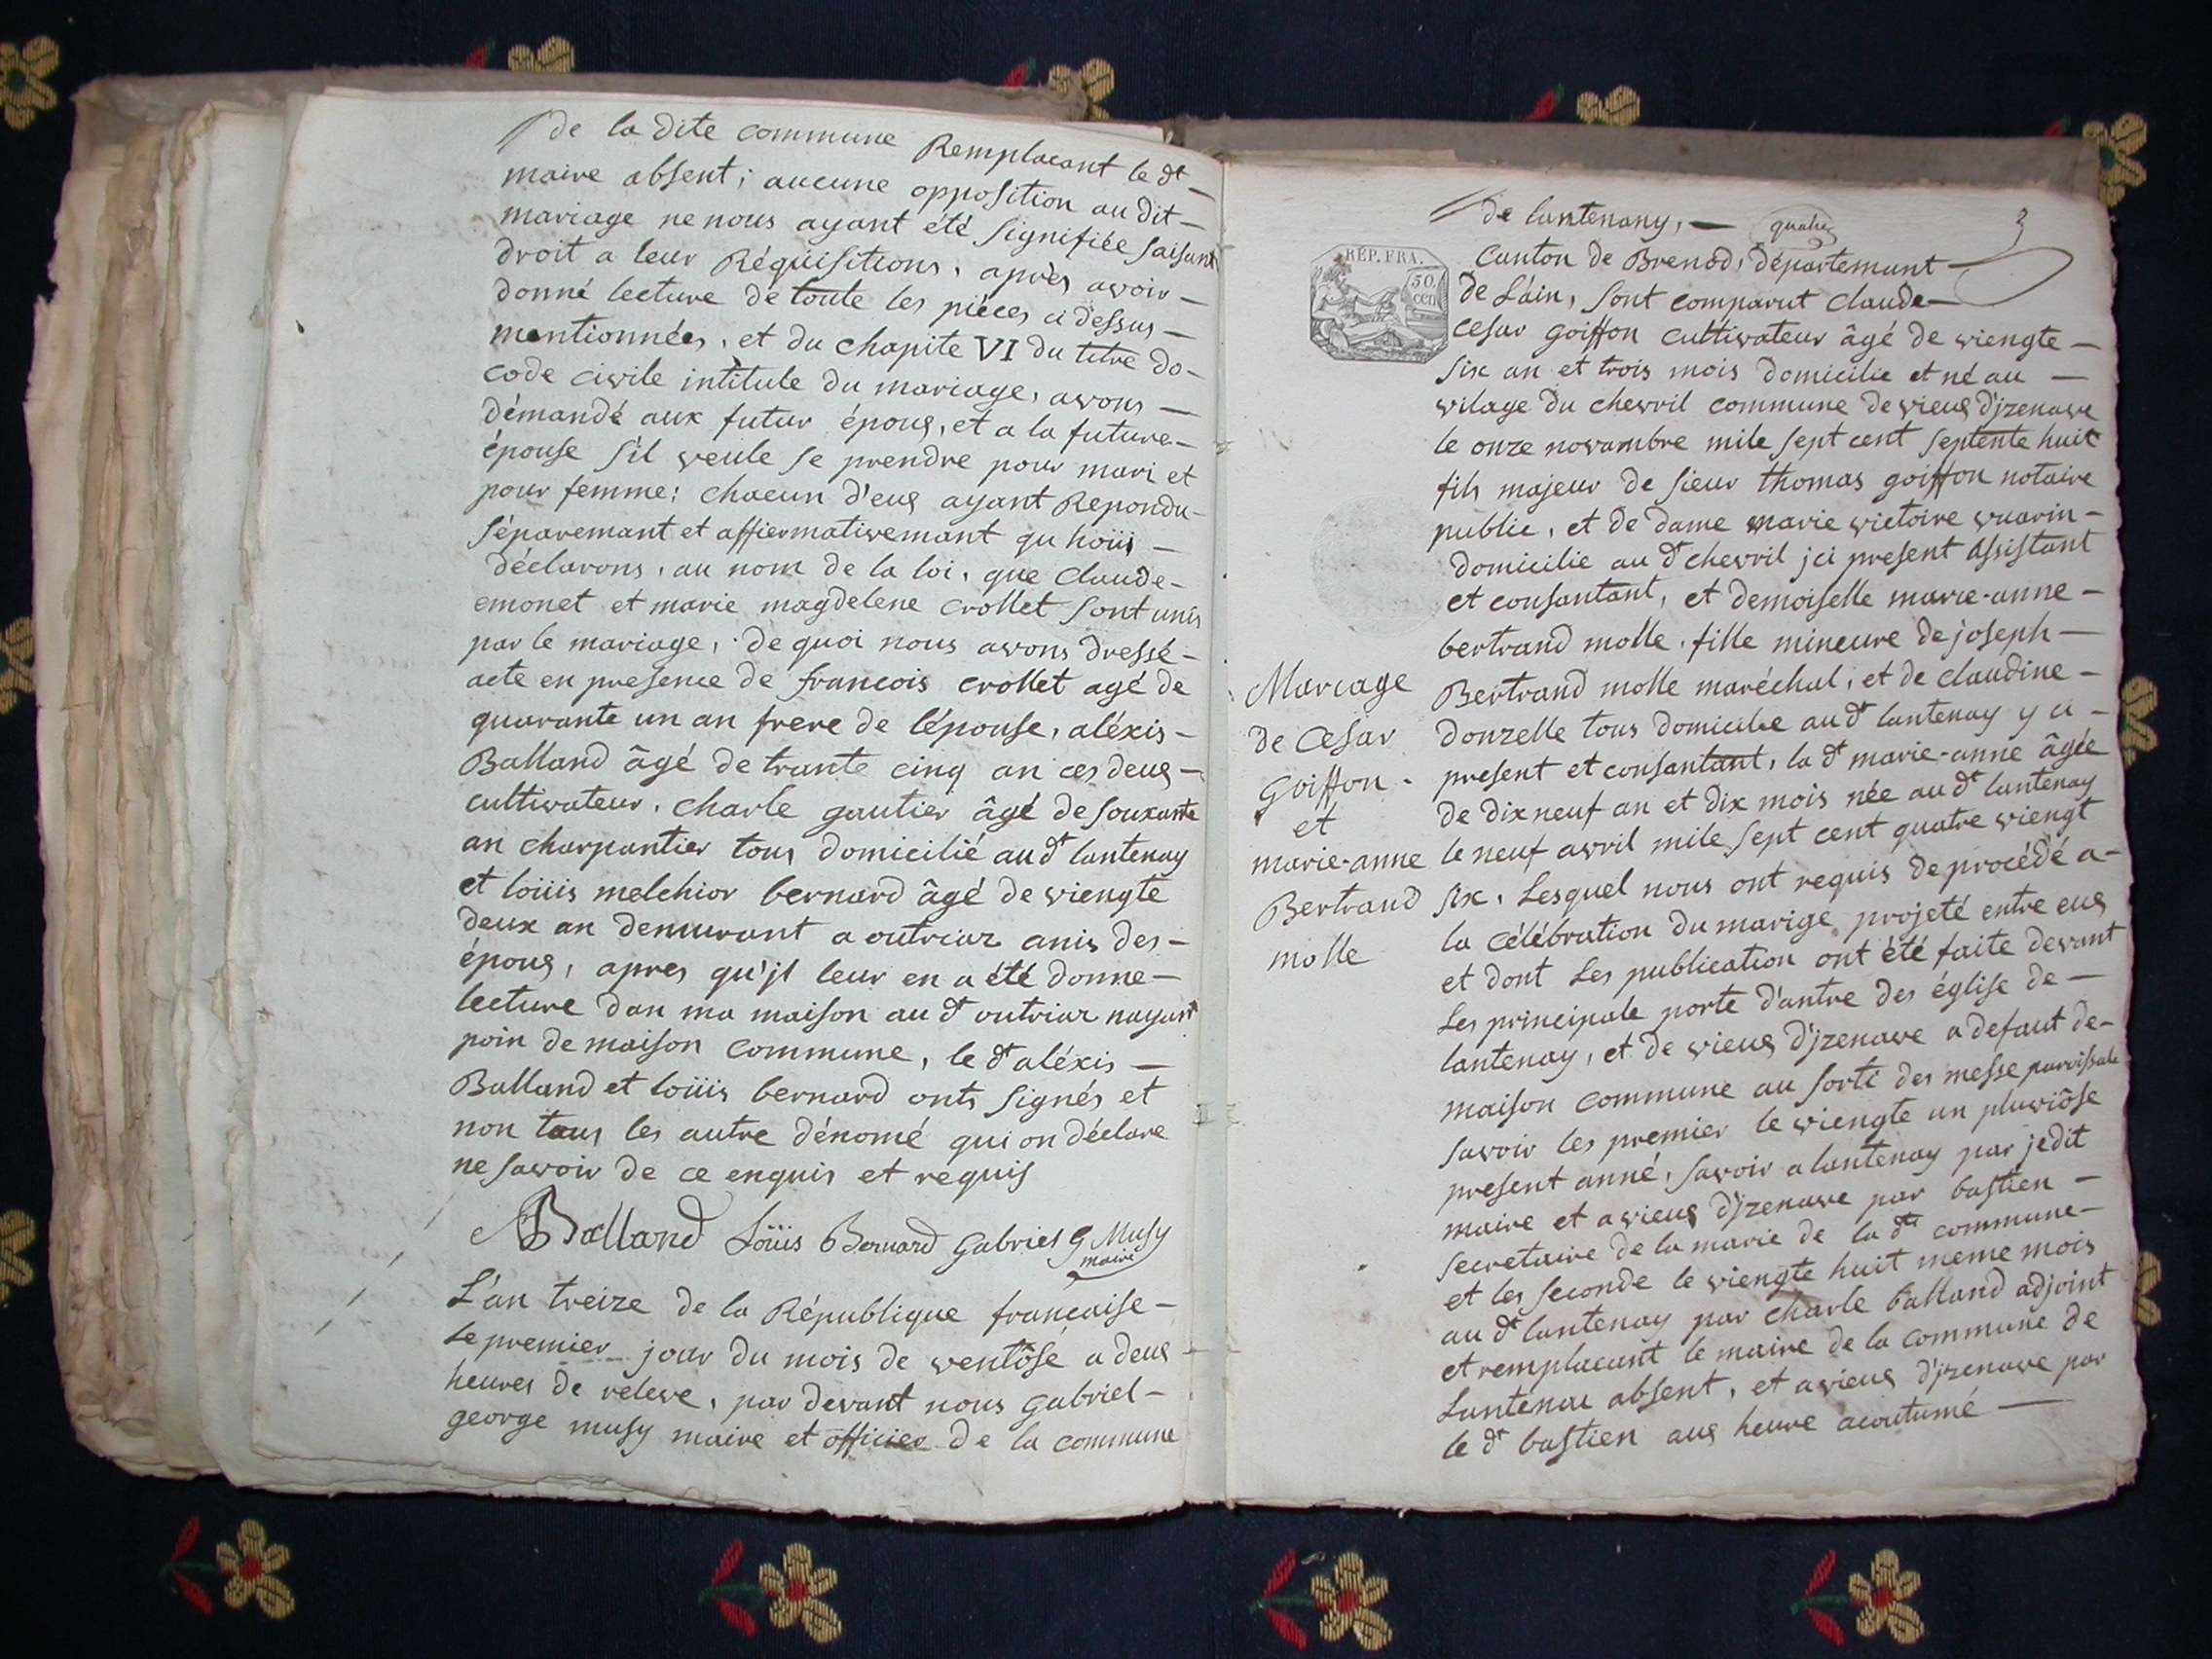 de la dite commune Remplacant le dt
maire absent; aucune opposition au dit
mariage ne nous ayant été signifiée faisant
droit a leur Réquisitions, après avoir
donné lecture de toute les pièces ci dessus
mentionnées, et du chapite VI du titre do
code civile intitule du mariage, avons
démandé aux futur époux, et a la future
épouse s'il veule se prendre pour mari et
pour femme: chacun d'eux ayant Repondu
séparemant et affiermativemant qu hoüis
déclarons, au nom de la loi, que Claude
emonet et marie magdelene crollet sont unis
par le mariage, de quoi nous avons dressé
acte en presence de francois crollet agé de
quarante un an frere de l'épouse, aléxis
Balland âgé de trante cinq an ces deux
cultivateur, charle gautier âgé de souxante
an charpantier tous domicilié au dt lantenay
et loüis melchior bernard âgé de viengte
deux an demurant a outriaz amis des
époux, apres qu'jl leur en a été donne
lecture dan ma maison au dt outriaz nayant
poin de maison commune, le dt aléxis
Balland et loüis bernard onts signés et
non tous les autre dénomé qui on déclare
ne savoir de ce enquis et requis
ABalland Loüis Bernard Gabriel g Musy
maire
L'an treize de la République francaise
le premier jour du mois de ventôse a deux
heures de releve, par devant nous gabriel
george musy maire et officier de la commune
de lantenany, quatre 3
Canton de Brenod, département
RÉP. FRA.
50 cen
de L'ain, sont comparut claude
cesar goiffon cultivateur âgé de viengte
six an et trois mois domicilie et né au
vilage du chevril commune de vieux d'jzenave
le onze novambre mile sept cent septente huit
fils majeur de sieur thomas goiffon notaire
public, et de dame marie victoire vuarin
domicilie au dt chevril jci present Assistant
et consantant, et demoiselle marie-anne
bertrand molle, fille mineure de joseph
Mariage
de Cesar
Goiffon
et
marie-anne
Bertrand
molle
Bertrand molle maréchal, et de claudine
donzelle tous domicilie au dt lantenay y ci
present et consantant, la dt marie-anne âgée
de dix neuf an et dix mois née au dt lantenay
le neuf avril mile sept cent quatre viengt
six, Lesquel nous ont requis de procédé a
la célébration du marige projeté entre eux
et dont Les publication ont été faite devant
Les principale porte d'antre des église de
lantenay, et de vieux d'jzenave a defaut de
maison commune au sorti des messe paroissale
savoir les premier le viengte un pluviôse
present anné, savoir a lantenay par jedit
maire et a vieux d'jzenave par bastien
secretaire de la marie de la dte commune
et les seconde le viengte huit meme mois
au dt lantenay par charle balland adjoint
et remplacant le maire de la commune de
Lantenai absent, et a vieux d'jzenave par
le dt bastien aux heure acoutumé